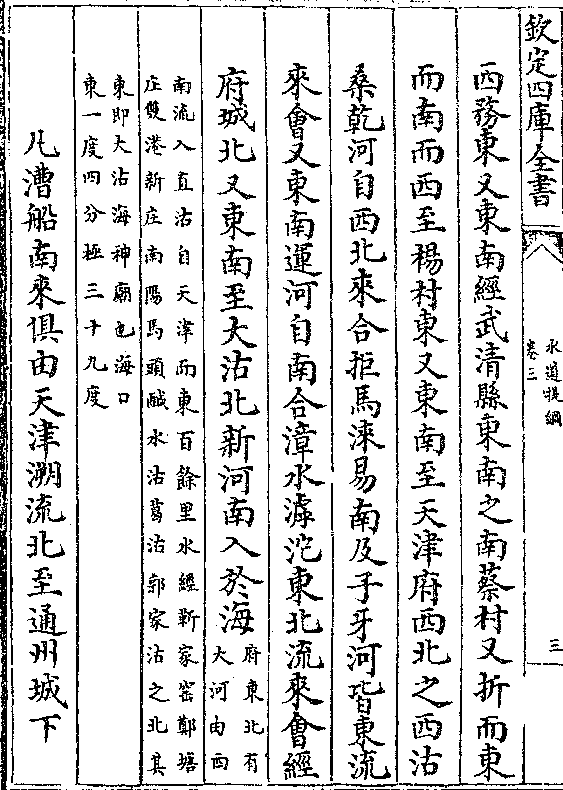 欽定四庫全書
水道提綱
卷三
三
西務東又東南經武清縣東南之南蔡村又折而東
而南而西至楊村東又東南至天津府西北之西沽
桑乾河自西北來合拒馬淶易南及子牙河皆東流
來會又東南運河自南合漳水滹沱東北流來會經
府城北又東南至大沽北新河南入於海
府東北有
大河由西
南流入直沽自天津而東百餘里水經靳家窰鄭塘
庄雙港新庄南馬頭鹹水沽葛沽郭家沽之北其
東即大沽海神廟也海口
東一度四分極三十九度
凡漕船南來俱由天津溯流北至通州城下